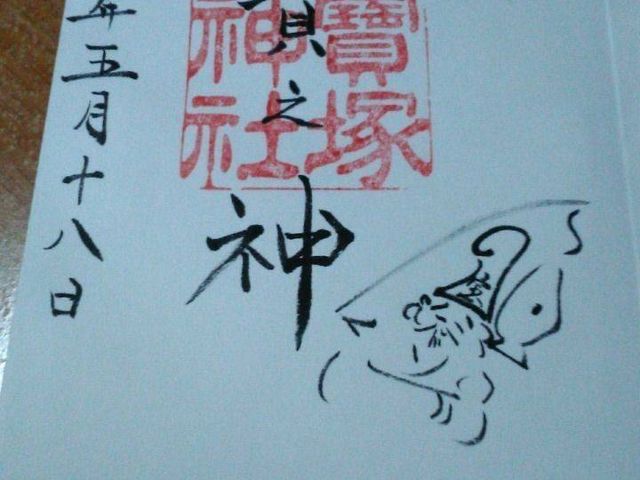 寶塚
神社
之神
年五月十八日